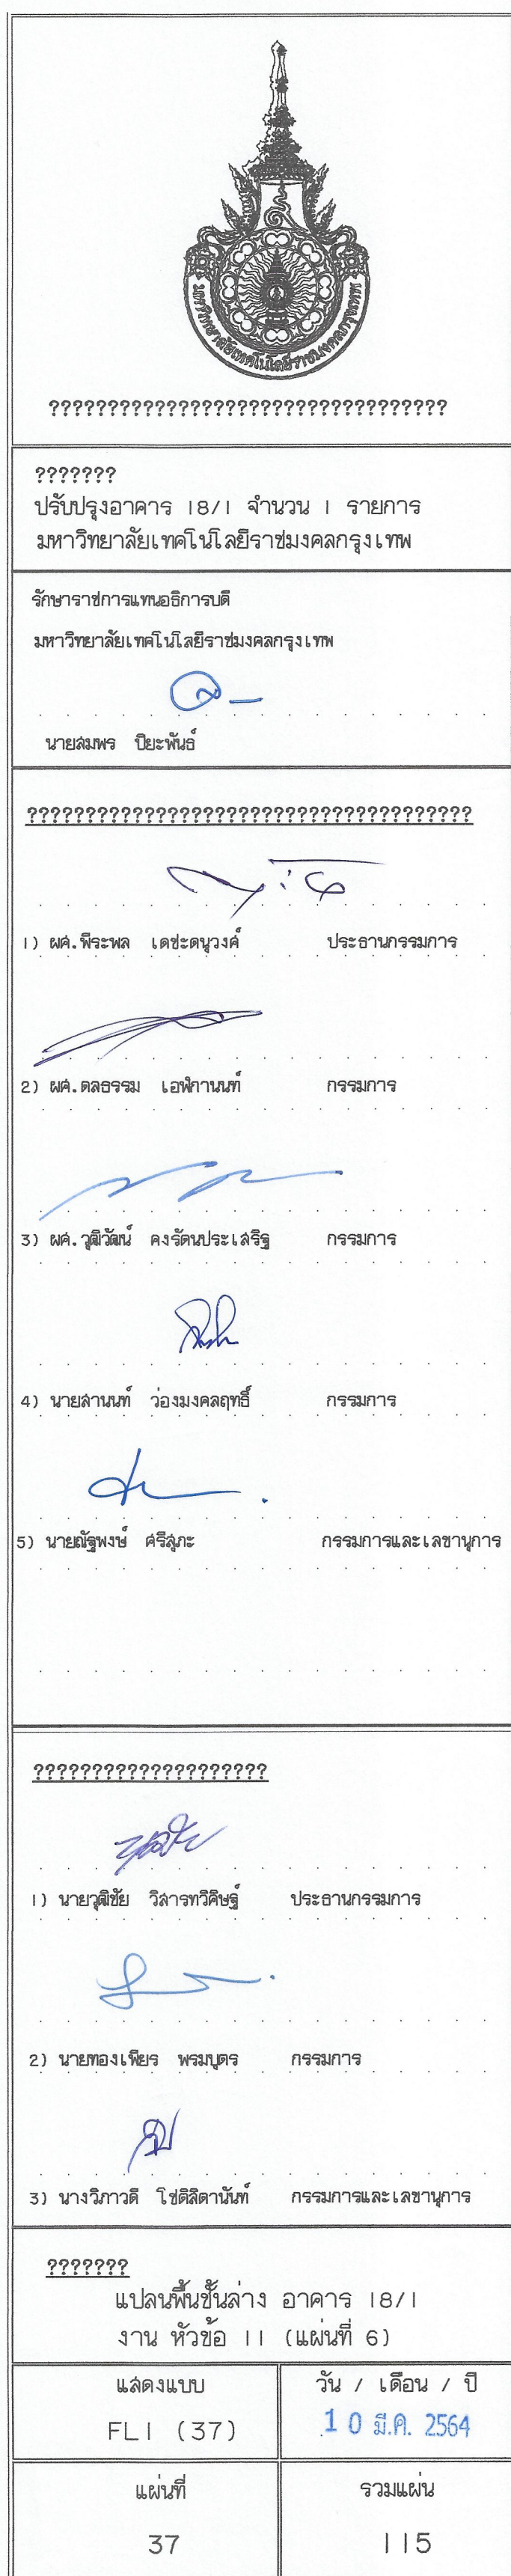 มหาวิทยาลัยเทคโนโลยีราชมงคลกรุงเทพ
??????????????????????????????????
???????
ปรับปรุงอาคาร 18/1 จำนวน 1 รายการ
มหาวิทยาลัยเทคโนโลยีราชมงคลกรุงเทพ
รักษาราชการแทนอธิการบดี
มหาวิทยาลัยเทคโนโลยีราชมงคลกรุงเทพ
นายสมพร ปิยะพันธ์
??????????????????????????????????????
1) ผศ.พีระพล เดชะดนุวงศ์ ประธานกรรมการ
2) ผศ.ดลธรรม เอฬกานนท์ กรรมการ
3) ผศ.วุฒิวัฒน์ คงรัตนประเสริฐ กรรมการ
4) นายสานนท์ ว่องมงคลฤทธิ์ กรรมการ
5) นายณัฐพงษ์ ศรีสุภะ กรรมการและเลขานุการ
????????????????????
1) นายวุฒิชัย วิสารทวิศิษฐ์ ประธานกรรมการ
2) นายทองเพียร พรมบุตร กรรมการ
3) นางวิภาวดี โชติลิดานันท์ กรรมการและเลขานุการ
???????
แปลนพื้นชั้นล่าง อาคาร 18/1
งาน หัวข้อ 11 (แผ่นที่ 6)
แสดงแบบ
วัน / เดือน / ปี
FL1 (37)
10 มี.ค. 2564
แผ่นที่
รวมแผ่น
37
115